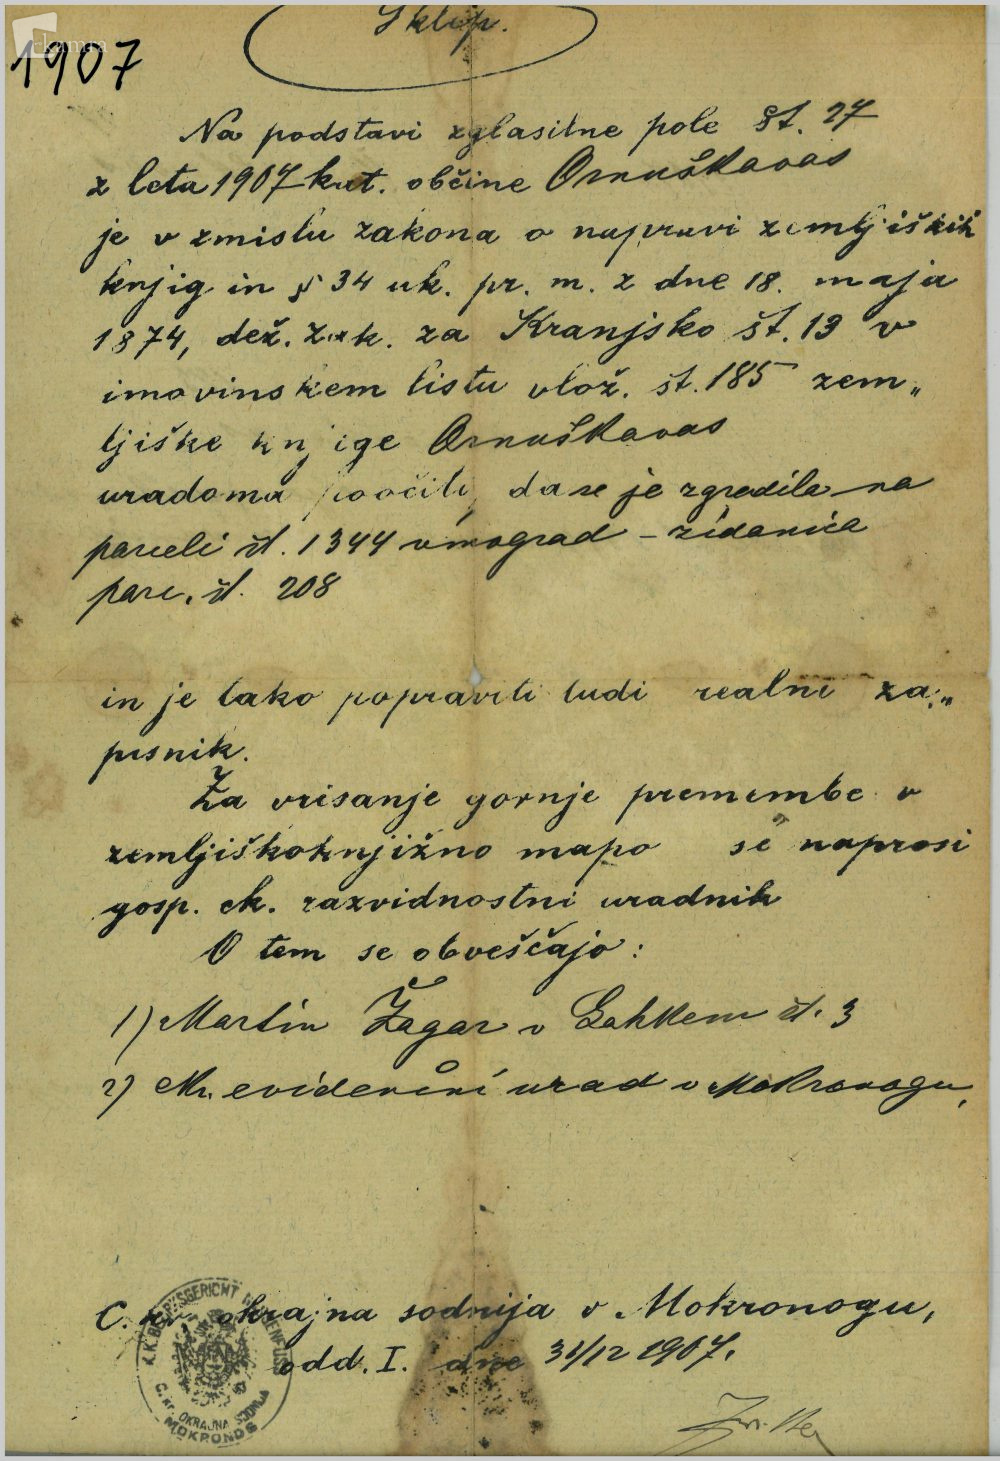 Sklep.
1907
Na podstavi zglasilne pole št. 27
z leta 1907 kat. občine Ornuškavas
je v zmislu zakona o napravi zemljiških
knjig in § 34 uk. pr. m. z dne 18. maja
1874, dež. zak. za Kranjsko št. 13 v
imovinskem listu vlož. št. 185 zem„
ljiške knjige Ornuškavas
uradoma poočiti, da se je zgradila na
parceli št. 1344 vinograd – zidanica
parc. št. 208
in je tako popraviti tudi realni za„
pisnik.
Za vrisanje gornje premembe v
zemljiškoknjižno mapo se naprosi
gosp. ck. razvidnostni uradnik
O tem se obveščajo:
1) Martin Žagar v št. 3
2) evidenčni urad v Mokronogu,
C. kr. okrajna sodnija v Mokronogu,
odd. I. dne 31/12 1907.
K.K. BEZIRKSGERICHT NASSENFUSS
C. kr. OKRAJNA SODNIJA
MOKRONOG